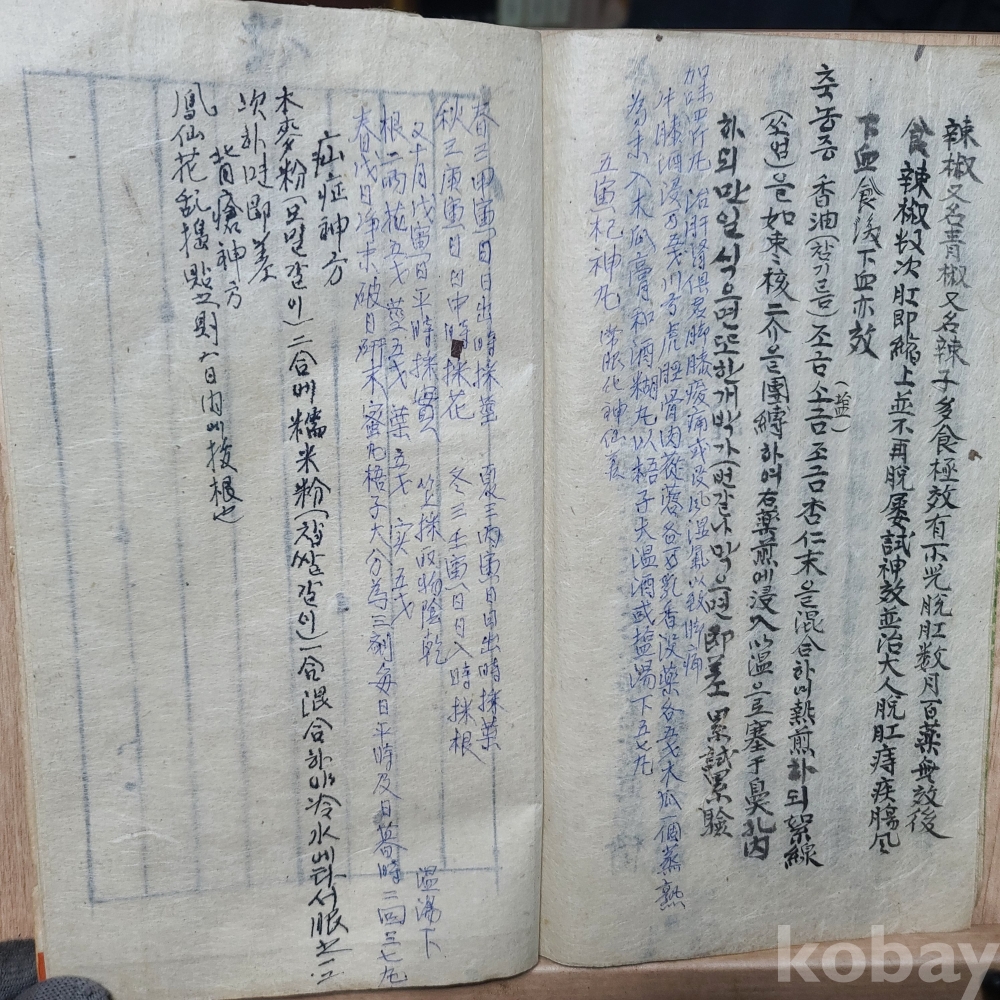 辣椒又名青椒又名辣子多食極效有一小兒脫肛数月百藥無效後
食辣椒数次肛即縮上並不再脫屡試神效並治大人脫肛痔疾腸风
下血食後下血亦效
축농증 香油(참기름)조금소금조금杏仁末을混合하며熱煎하되絮線
(鹽)
(쏘엄)을如棗核二介을團縛하여右薬煎에浸入以温으로塞于鼻孔内
하되만일식으면또한개박가(번갈나막으면即差累試累驗
加味四斤丸 治肝腎俱虚脚膝痠痛或受风湿氣以致脚痛
牛膝酒浸 川芎虎脛骨肉蓯蓉各 乳香没薬各五戈木瓜一個蒸熟
為末入木瓜膏和酒糊丸以梧子大温酒或塩湯下五七丸
五寅杞神丸 常服化神仙
春三甲寅日日出時採葉 夏三丙寅日日出時採葉
秋三庚寅日日中時採花 冬三壬寅日日入時採根
又十月戊寅日平時採實 並採收物陰乾
根二兩花五戈莖五戈葉五戈实五戈 温湯下
春戊日净末破日研末蜜丸梧子大分為三剤每日平時及日暮時二回三七丸
疝症神方
木麥粉(모밀갈이)二合에糯米粉(찹쌀갈이)一合混合하야冷水에타서服之
次하면即差
背瘡神方
鳳仙花乱搗貼之則 日内에拔根也
kobay